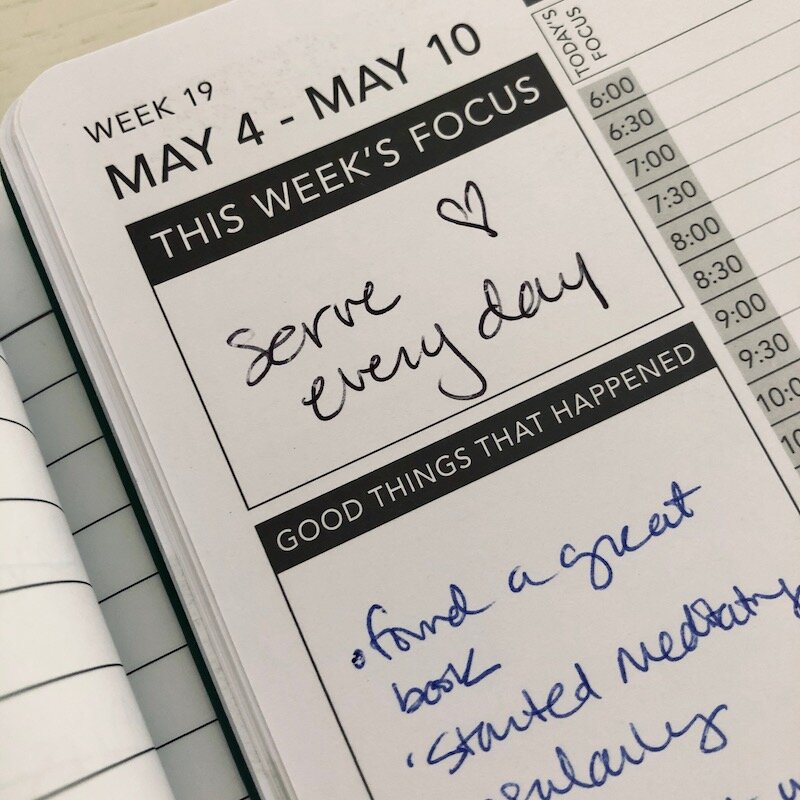 WEEK 19
MAY 4 - MAY 10
THIS WEEK'S FOCUS
serve
every day
GOOD THINGS THAT HAPPENED
• found a great
book
• started meditating
TODAY'S
FOCUS
6:00
6:30
7:00
7:30
8:00
8:30
9:00
9:30